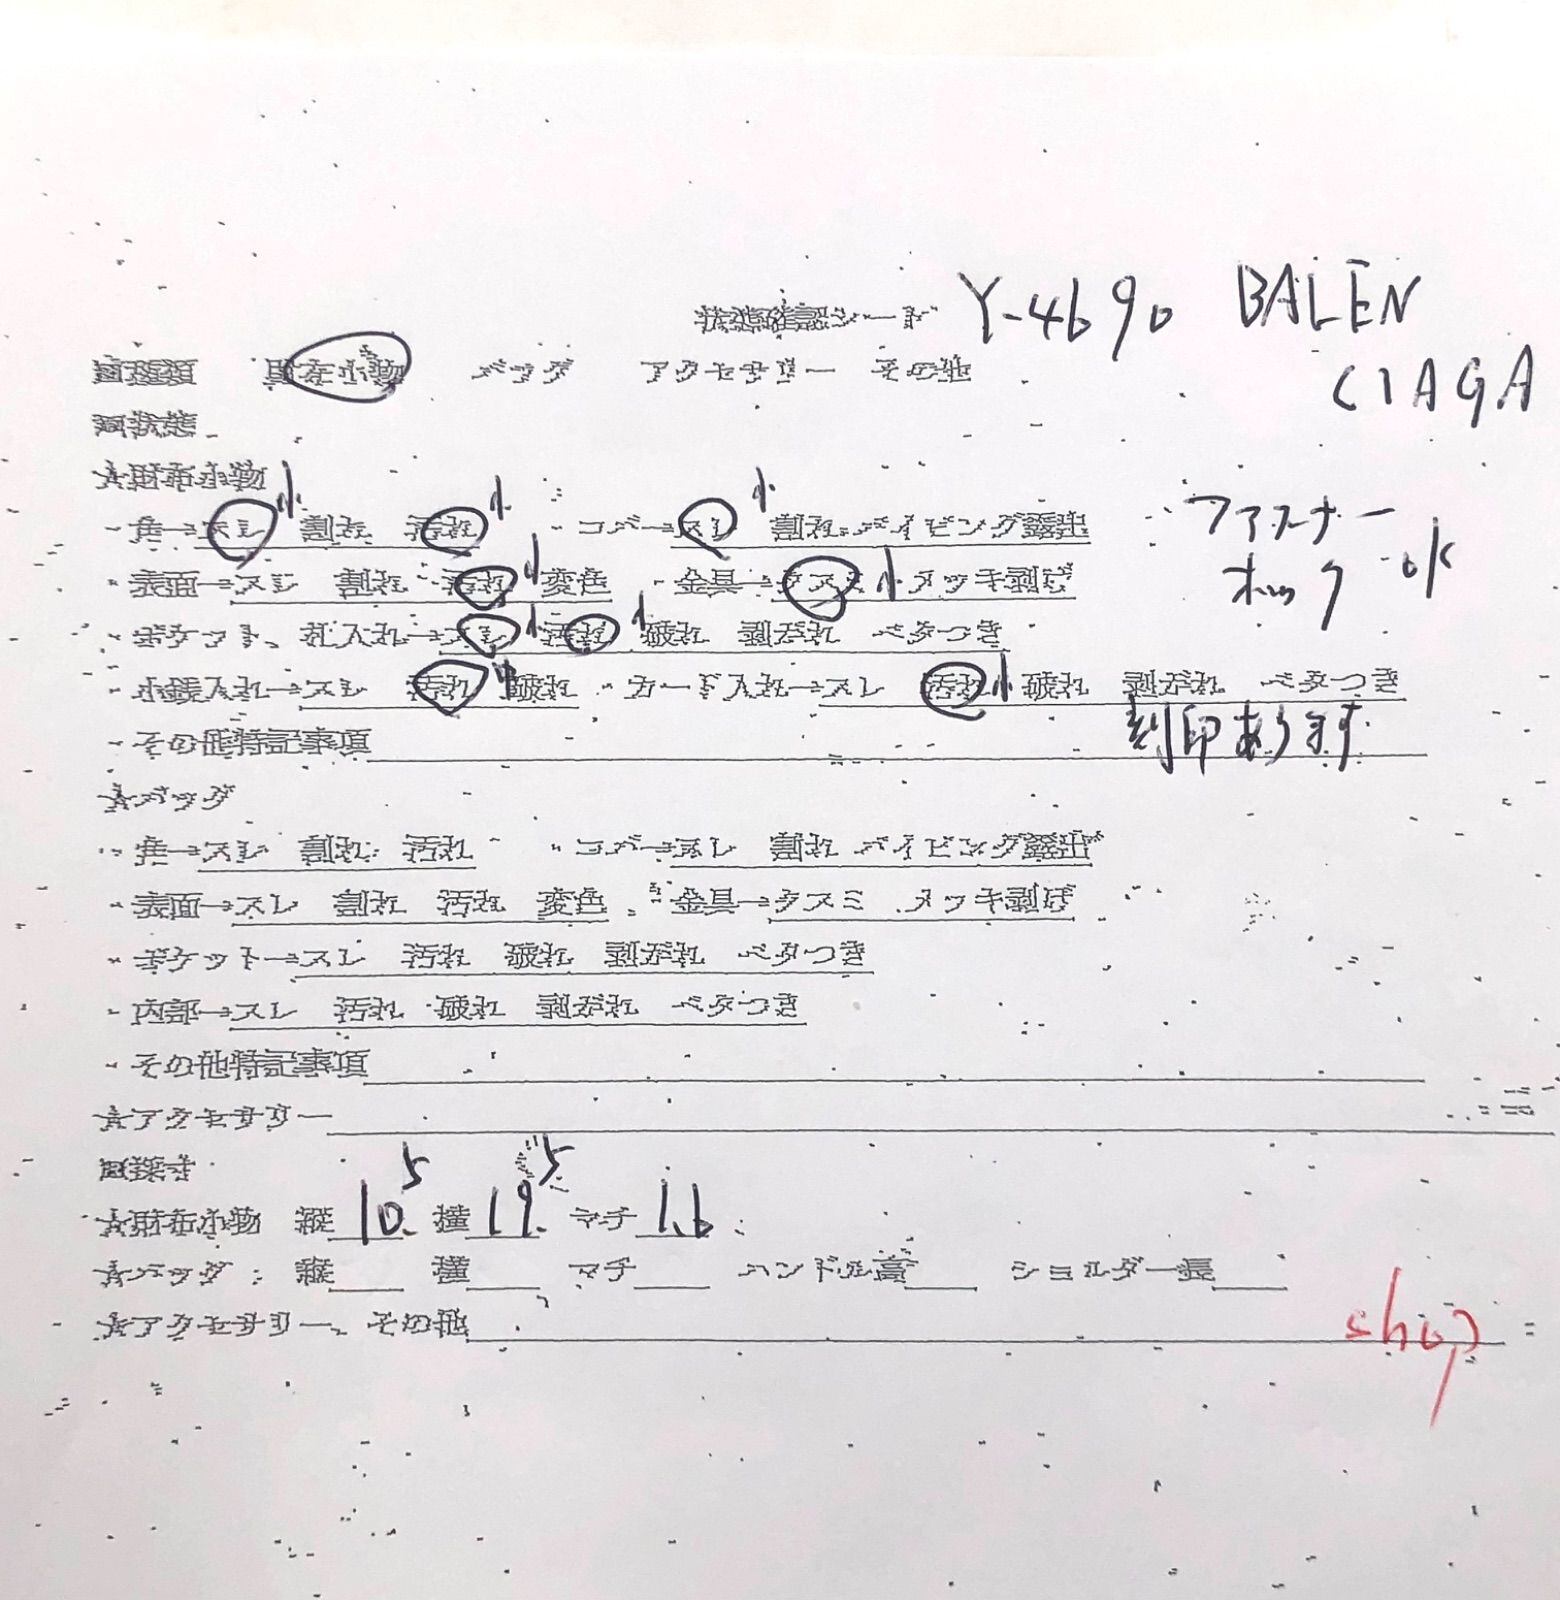 状態確認シート Y-4690 BALEN
CIAGA
種類 財布小物 バッグ アクセサリー その他
状態
☆財布小物
・角→スレ小 割れ 汚れ小 ・コバ→スレ小 割れ パイピング露出
ファスナー
ホック ok
・表面→スレ 割れ 汚れ小 変色 ・金具→クスミ小 メッキ剥げ
・ポケット、札入れ→スレ小 汚れ小 破れ 剥がれ ベタつき
・小銭入れ→スレ 汚れ中 破れ ・カード入れ→スレ 汚れ小 破れ 剥がれ ベタつき
・その他特記事項 刻印あります
☆バッグ
・角→スレ 割れ 汚れ ・コバ→スレ 割れ パイピング露出
・表面→スレ 割れ 汚れ 変色 ・金具→クスミ メッキ剥げ
・ポケット→スレ 汚れ 破れ 剥がれ ベタつき
・内部→スレ 汚れ 破れ 剥がれ ベタつき
・その他特記事項
☆アクセサリー
採寸
☆財布小物 縦 10.5 横 19.5 マチ 1.6
☆バッグ 縦 横 マチ ハンドル高 ショルダー長
☆アクセサリー、その他
shop